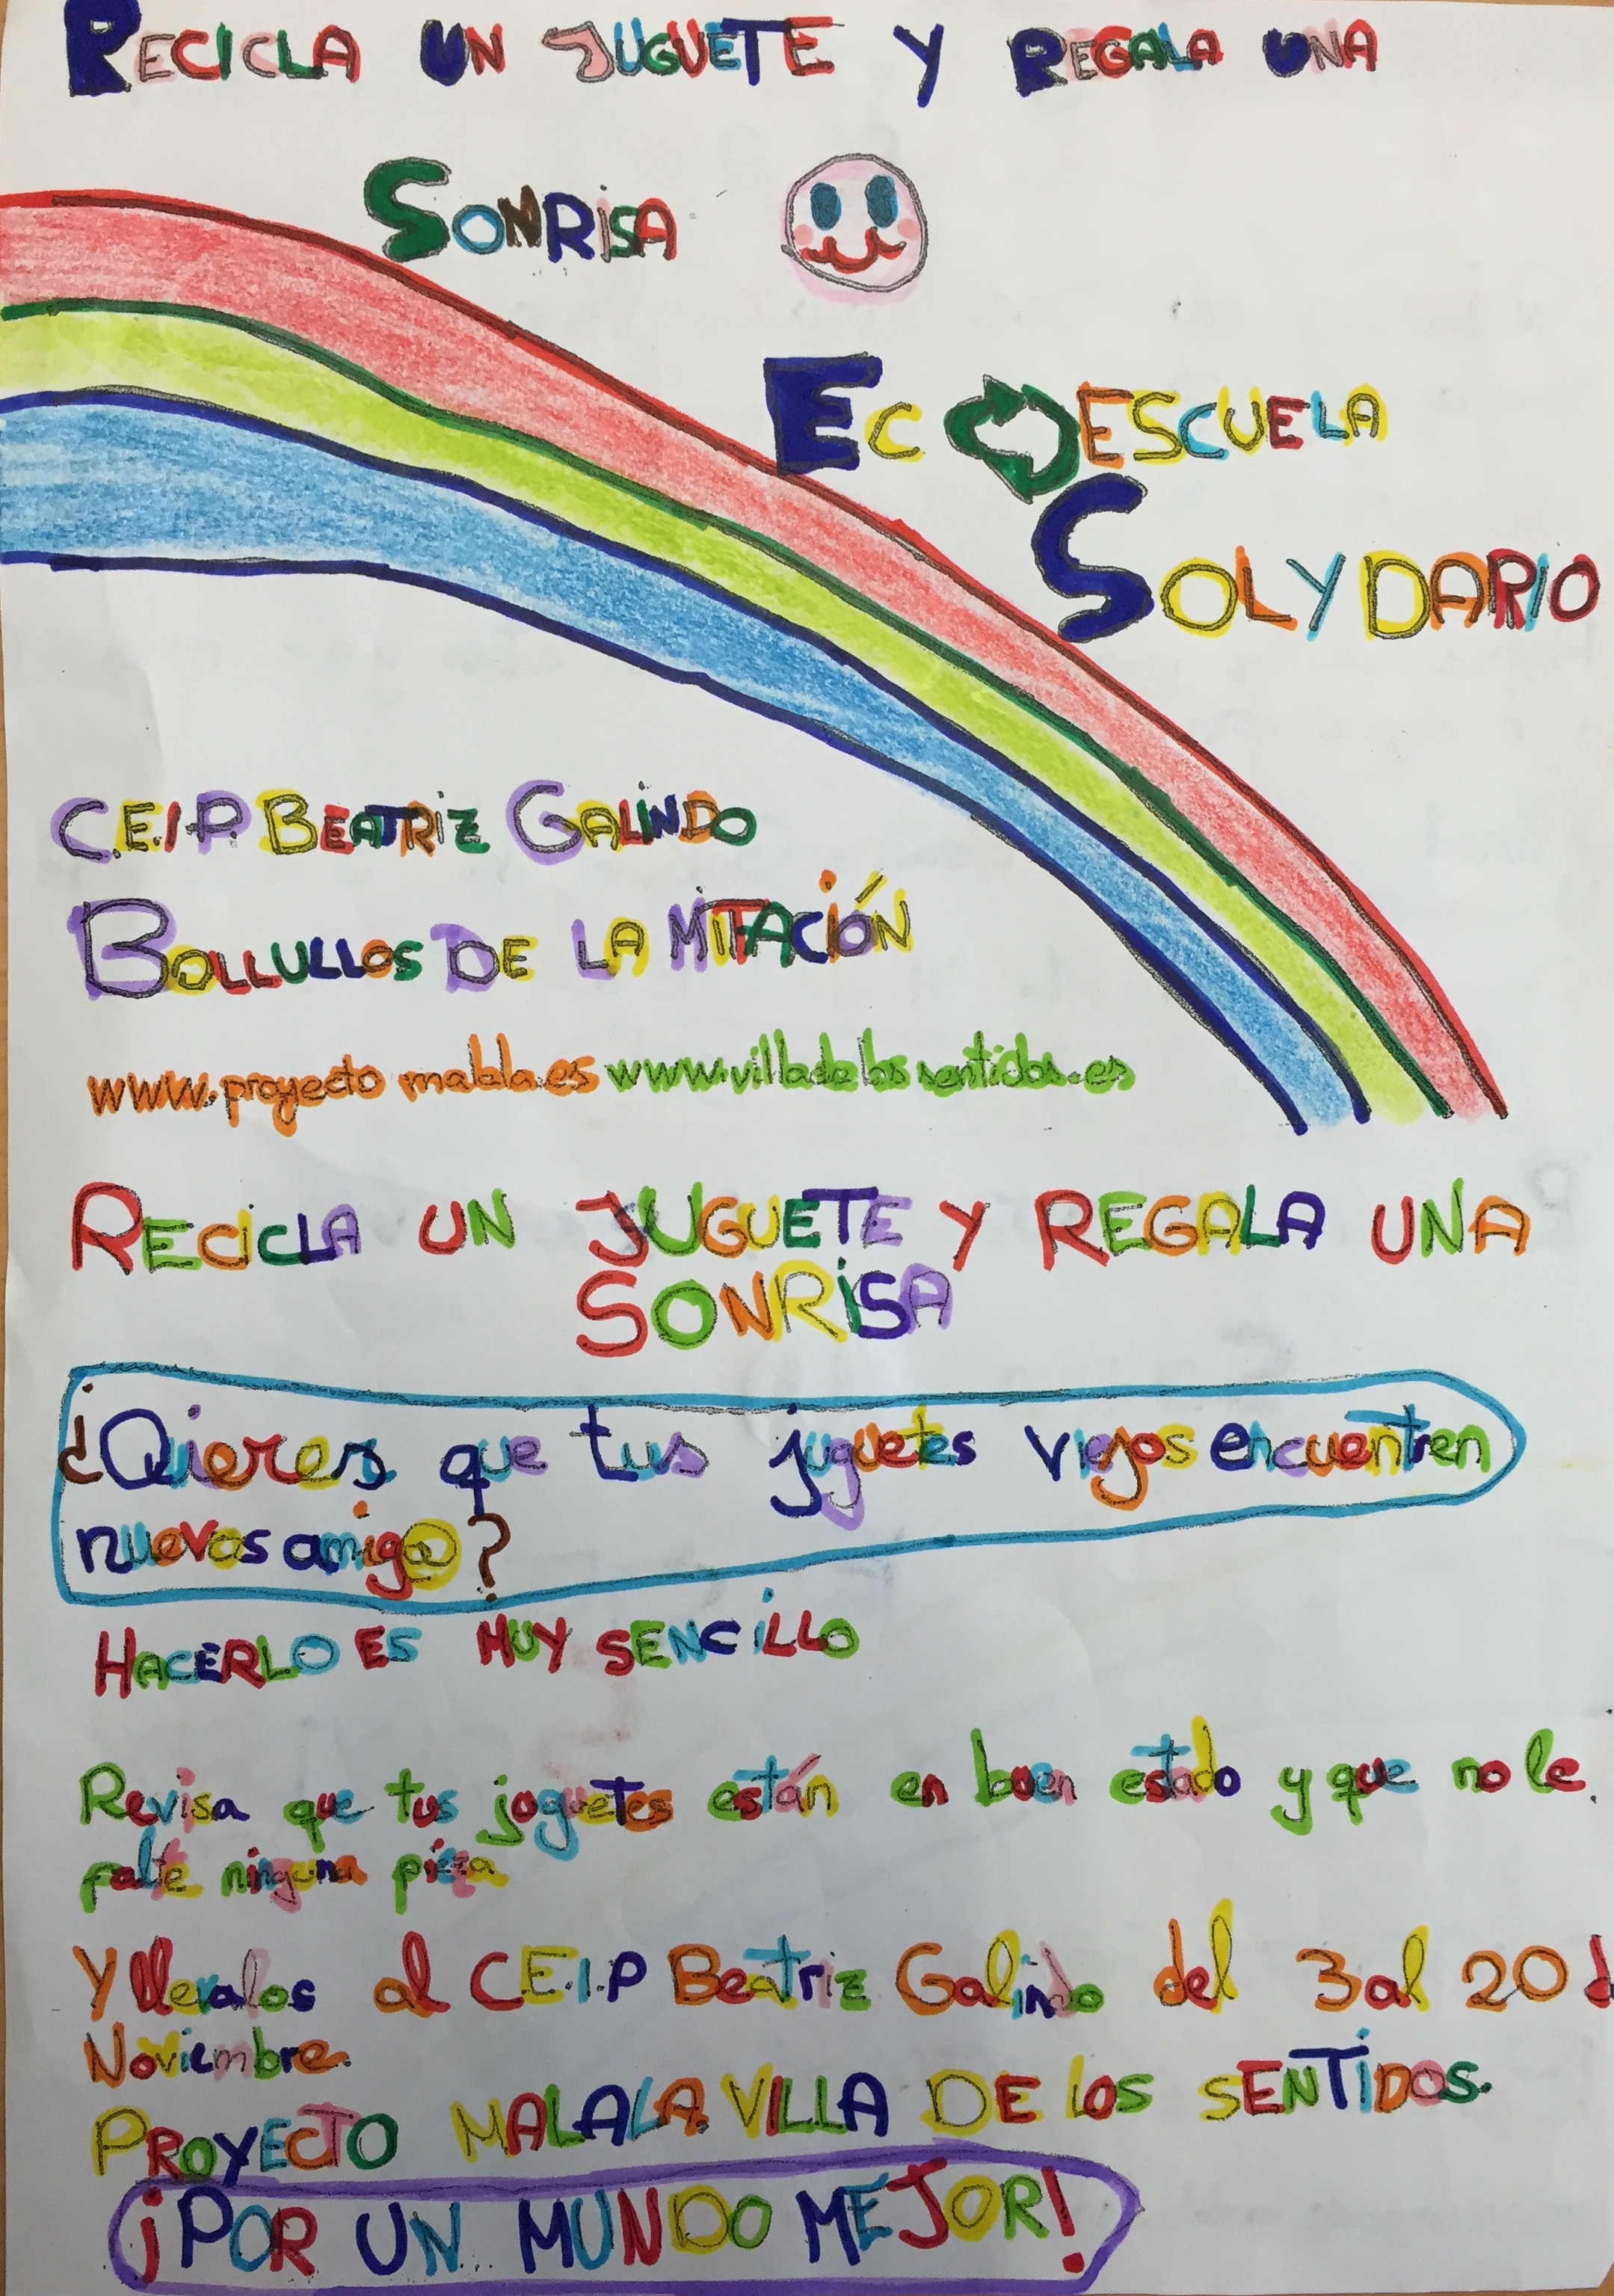 RECICLA UN JUGUETE Y REGALA UNA
SONRISA
ECOESCUELA
SOLYDARIO
C.E.I.P. BEATRIZ GALINDO
BOLLULLOS DE LA MITACIÓN
www.proyecto malala.es www.villadelossentidos.es
RECICLA UN JUGUETE Y REGALA UNA
SONRISA
¿Quieres que tus juguetes viejos encuentren
nuevos amig@?
HACERLO ES MUY SENCILLO
Revisa que tus juguetes están en buen estado y que no le
falte ninguna pieza
Y llevalos al C.E.I.P Beatriz Galindo del 3 al 20 d
Noviembre.
PROYECTO MALALA. VILLA DE LOS SENTIDOS.
¡POR UN MUNDO MEJOR!